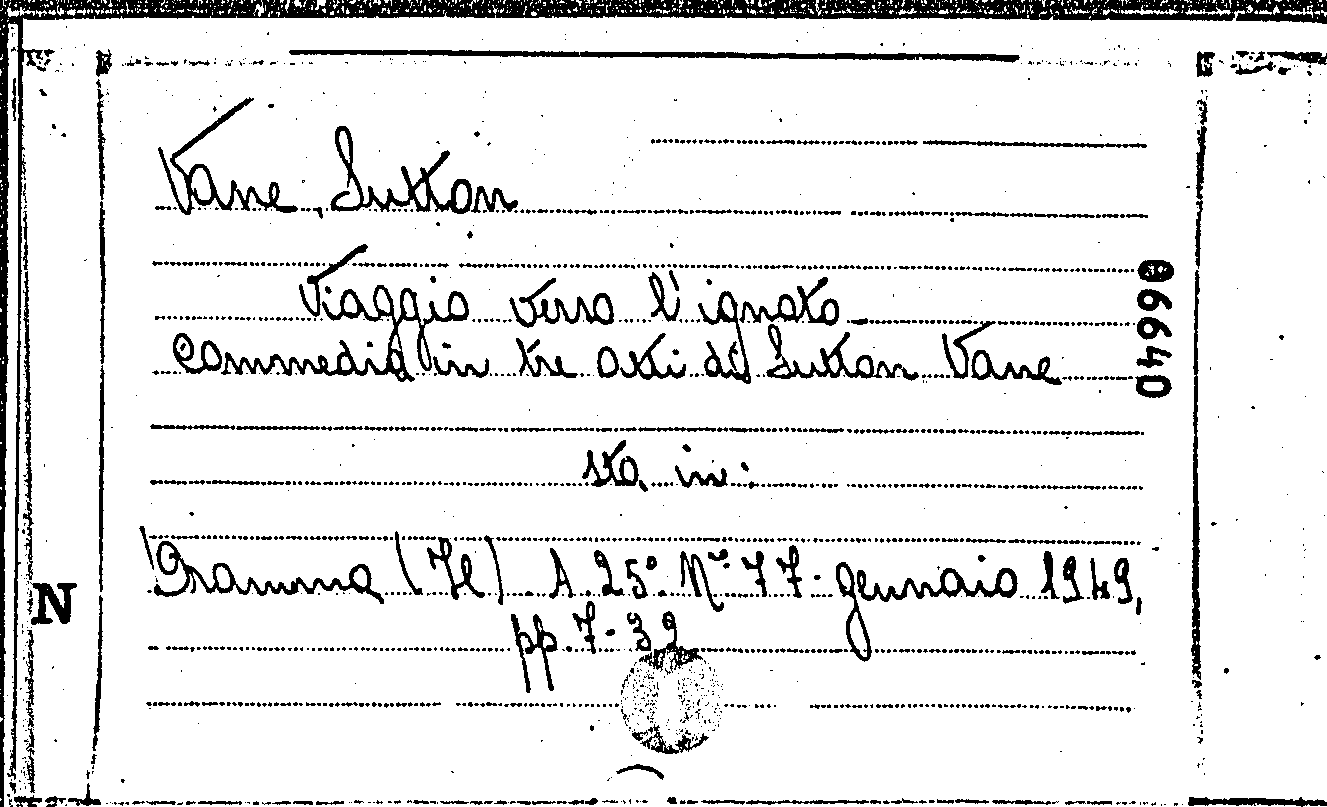 Vane, Sutton
Viaggio verso l'ignoto
Commedia in tre atti di Sutton Vane
sta in:
Dramma (Il). A. 25° Nº 77. gennaio 1949,
pp. 7-32
06640
N